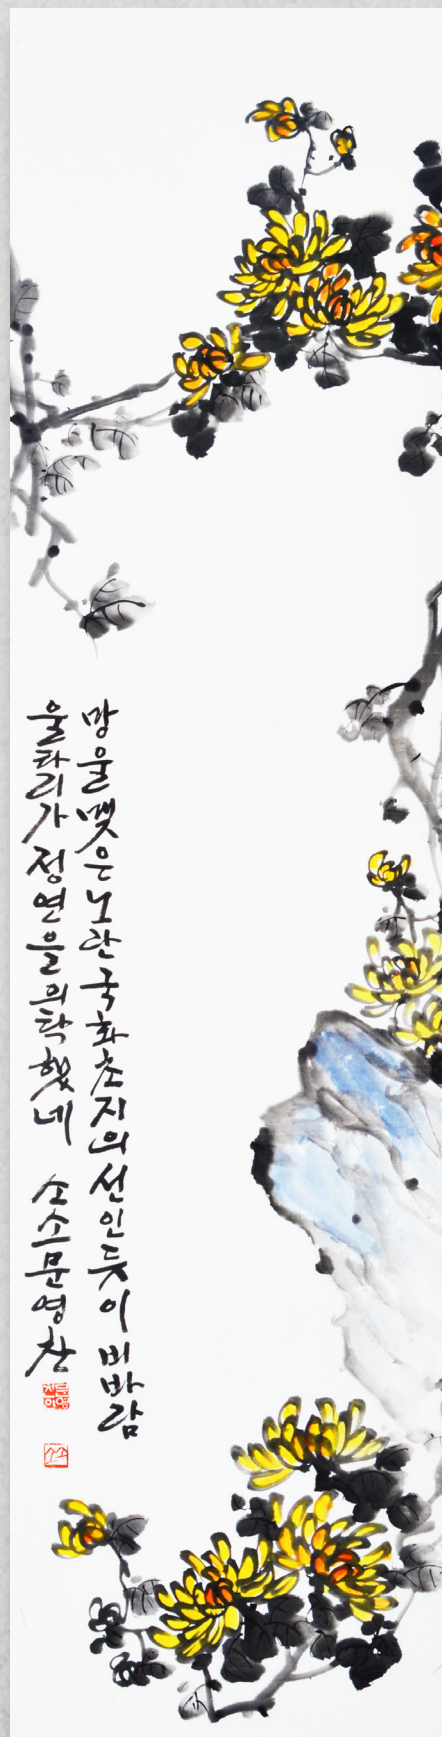 망울맺은노란국화초지의선인듯이 비바람
울타리가정연을의탁했네 소소문영찬